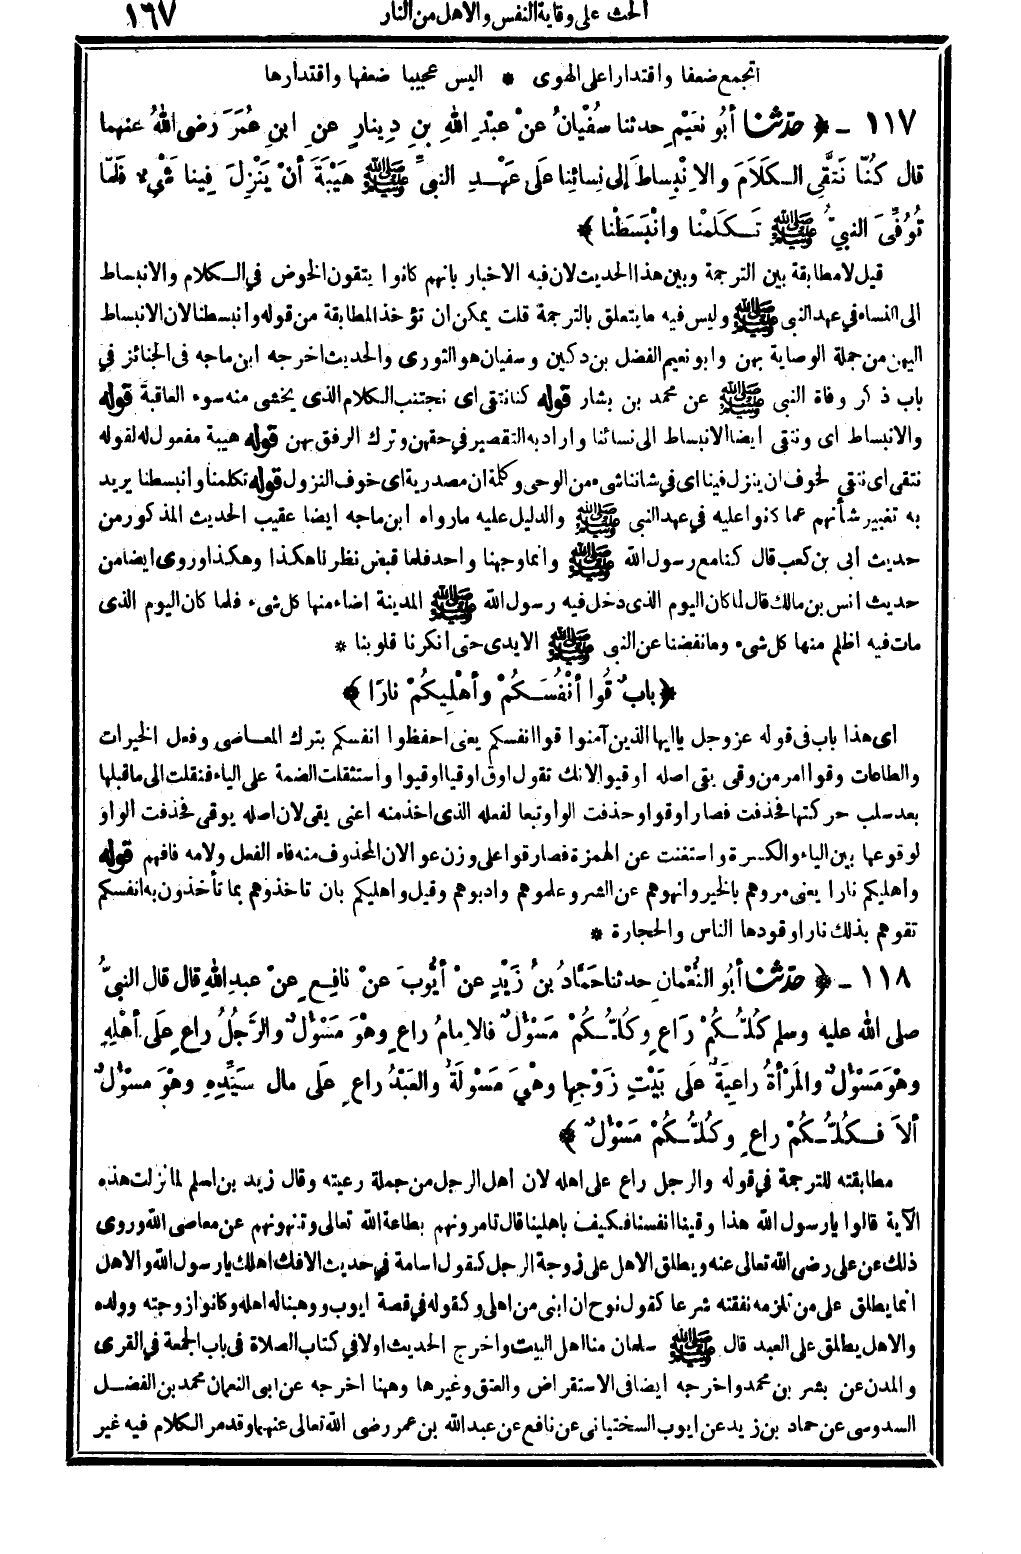 الحث على وقاية النفس والاهل من النار ١٦٧
اتجمع ضعفا واقتدارا على الهوى * اليس عجيبا ضعفها واقتدارها
١١٧ - ﴿ حَدَّثنا أبُو نعَيْمٍ حدثنا سُفْيَانُ عنْ عبْدِ اللهِ بنِ دِينارٍ عنِ ابنِ عُمَرَ رضى اللهُ عنهما
قال كُنَّا نَتَّقِى الـكَلَامَ والاِنْبِساطَ إلى نِسائِنا علَى عَهْـدِ النبىِّ ﷺ هَيْبَةَ أنْ يَنْزِلَ فِينا شَىْءٌ فَلَمَّا
تُوُفِّىَ النبىُّ ﷺ تَـكَلَمْنا وانْبَسَطْنا ﴾
قيل لا مطابقة بين الترجمة وبين هذا الحديث لان فيه الاخبار بانهم كانوا يتقون الخوض في الـكلام والانبساط
الى النساء في عهد النبى ﷺ وليس فيه ما يتعلق بالترجمة قلت يمكن ان تؤخذ المطابقة من قوله وانبسطنا لان الانبساط
اليهن من جملة الوصاية بهن وابو نعيم الفضل بن دكين وسفيان هو الثورى والحديث اخرجه ابن ماجه فى الجنائز في
باب ذكر وفاة النبى ﷺ عن محمد بن بشار قوله كنا نتقى اى نجتنب الـكلام الذى يخشى منه سوء العاقبة قوله
والانبساط اى ونتقى ايضا الانبساط الى نسائنا واراد به التقصير في حقهن وترك الرفق بهن قوله هيبة مفعول له لقوله
نتقى اى نتقى لخوف ان ينزل فينا اى في شاننا شىء من الوحى وكلمة ان مصدرية اى خوف النزول قوله تكلمنا وانبسطنا يريد
به تغيير شأنهم عما كانوا عليه في عهد النبى ﷺ والدليل عليه ما رواه ابن ماجه ايضا عقيب الحديث المذكور من
حديث ابى بن كعب قال كنا مع رسول الله ﷺ وانما وجهنا واحد فلما قبض نظرنا هكذا وهكذا وروى ايضا من
حديث انس بن مالك قال لما كان اليوم الذى دخل فيه رسول الله ﷺ المدينة اضاء منها كل شىء فلما كان اليوم الذى
مات فيه اظلم منها كل شىء وما نفضنا عن النبى ﷺ الايدى حتى انكرنا قلوبنا *
﴿ بابٌ قُوا أنْفُسَـكُمْ وأهْلِيكُمْ نارًا ﴾
اى هذا باب فى قوله عز وجل يا ايها الذين آمنوا قوا انفسكم يعنى احفظوا انفسكم بترك المعـاصى وفعل الخيرات
والطاعات وقوا امر من وقى يقى اصله اوقيوا لانك تقول اوق اوقيا اوقيوا واستثقلت الضمة على الياء فنقلت الى ما قبلها
بعد سلب حركتها فحذفت فصار اوقوا وحذفت الواو تبعا لفعله الذى اخذ منه اعنى يقى لان اصله يوقى فحذفت الواو
لوقوعها بين الياء والكسرة واستغنت عن الهمزة فصار قوا على وزن عوا لان المحذوف منه فاء الفعل ولامه فافهم قوله
واهليكم نارا يعنى مروهم بالخير وانهوهم عن الشر وعلموهم وادبوهم وقيل واهليكم بان تاخذوهم بما تأخذون به انفسكم
تقوهم بذلك نارا وقودها الناس والحجارة *
١١٨ - ﴿ حَدَّثنا أبُو النُّعْمانِ حدثنا حَمَّادُ بنُ زَيْدٍ عنْ أيُّوبَ عنْ نافِعٍ عنْ عبدِ اللهِ قال قال النبىُّ
صلى الله عليه وسلم كُلُّـكُمْ رَاعٍ وكُلُّـكُمْ مَسْؤُلٌ فالاِمامُ راعٍ وهْوَ مَسْؤُلٌ والرَّجُلُ راعٍ علَى أهْلِهِ
وهْوَ مَسْؤُلٌ والمَرْأةُ راعِيَةٌ علَى بَيْتِ زَوْجِها وهْىَ مَسْؤُلَةٌ والعَبْدُ راعٍ علَى مالِ سَيِّدِهِ وهْوَ مَسْؤُلٌ
ألاَ فَـكُلُّـكُمْ راعٍ وكُلُّـكُمْ مَسْؤُلٌ ﴾
مطابقته للترجمة في قوله والرجل راع على اهله لان اهل الرجل من جملة رعيته وقال زيد بن اسلم لما نزلت هذه
الآية قالوا يا رسول الله هذا وقينا انفسنا فكيف باهلينا قال تامرونهم بطاعة الله تعالى وتنهونهم عن معاصى الله وروى
ذلك عن على رضى الله تعالى عنه ويطلق الاهل على زوجة الرجل كقول اسامة في حديث الافك اهلك يا رسول الله والاهل
انما يطلق على من تلزمه نفقته شرعا كقول نوح ان ابنى من اهلى وكقوله في قصة ايوب ووهبنا له اهله وكانوا زوجته وولده
والاهل يطلق على العبد قال ﷺ سلمان منا اهل البيت واخرج الحديث اولا في كتاب الصلاة فى باب الجمعة في القرى
والمدن عن بشر بن محمد واخرجه ايضا فى الاستقراض والعتق وغيرها وههنا اخرجه عن ابى النعمان محمد بن الفضـل
السدوسى عن حماد بن زيد عن ايوب السختيانى عن نافع عن عبد الله بن عمر رضى الله تعالى عنهما وقد مر الكلام فيه غير